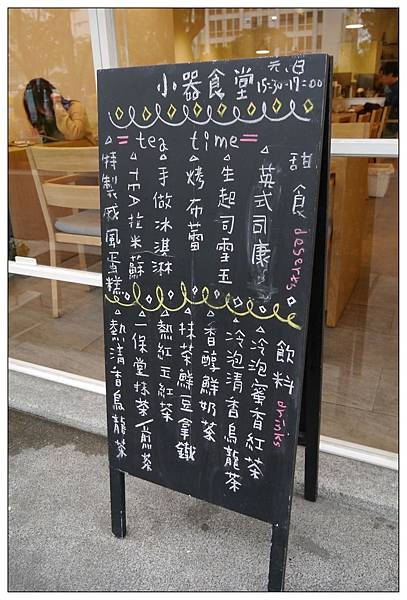 小器食堂
15:30-17:00
= tea time =
甜食 desserts
▵英式司康
▵生起司雪玉
▵烤布蕾
▵手做冰淇淋
▵TEA拉米蘇
▵特製戚風蛋糕
飲料 drinks
▵冷泡蜜香紅茶
▵冷泡清香烏龍茶
▵香醇鮮奶茶
▵抹茶鮮豆拿鐵
▵熱紅玉紅茶
▵一保堂抹茶/煎茶
▵熱清香烏龍茶